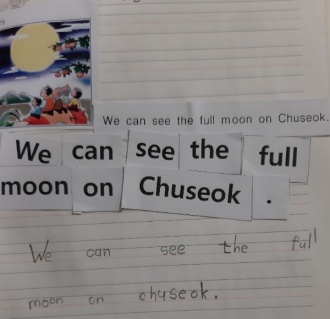 We can see the full moon on Chuseok.
We can see the full
moon on Chuseok .
We can see the full
moon on chuseok.